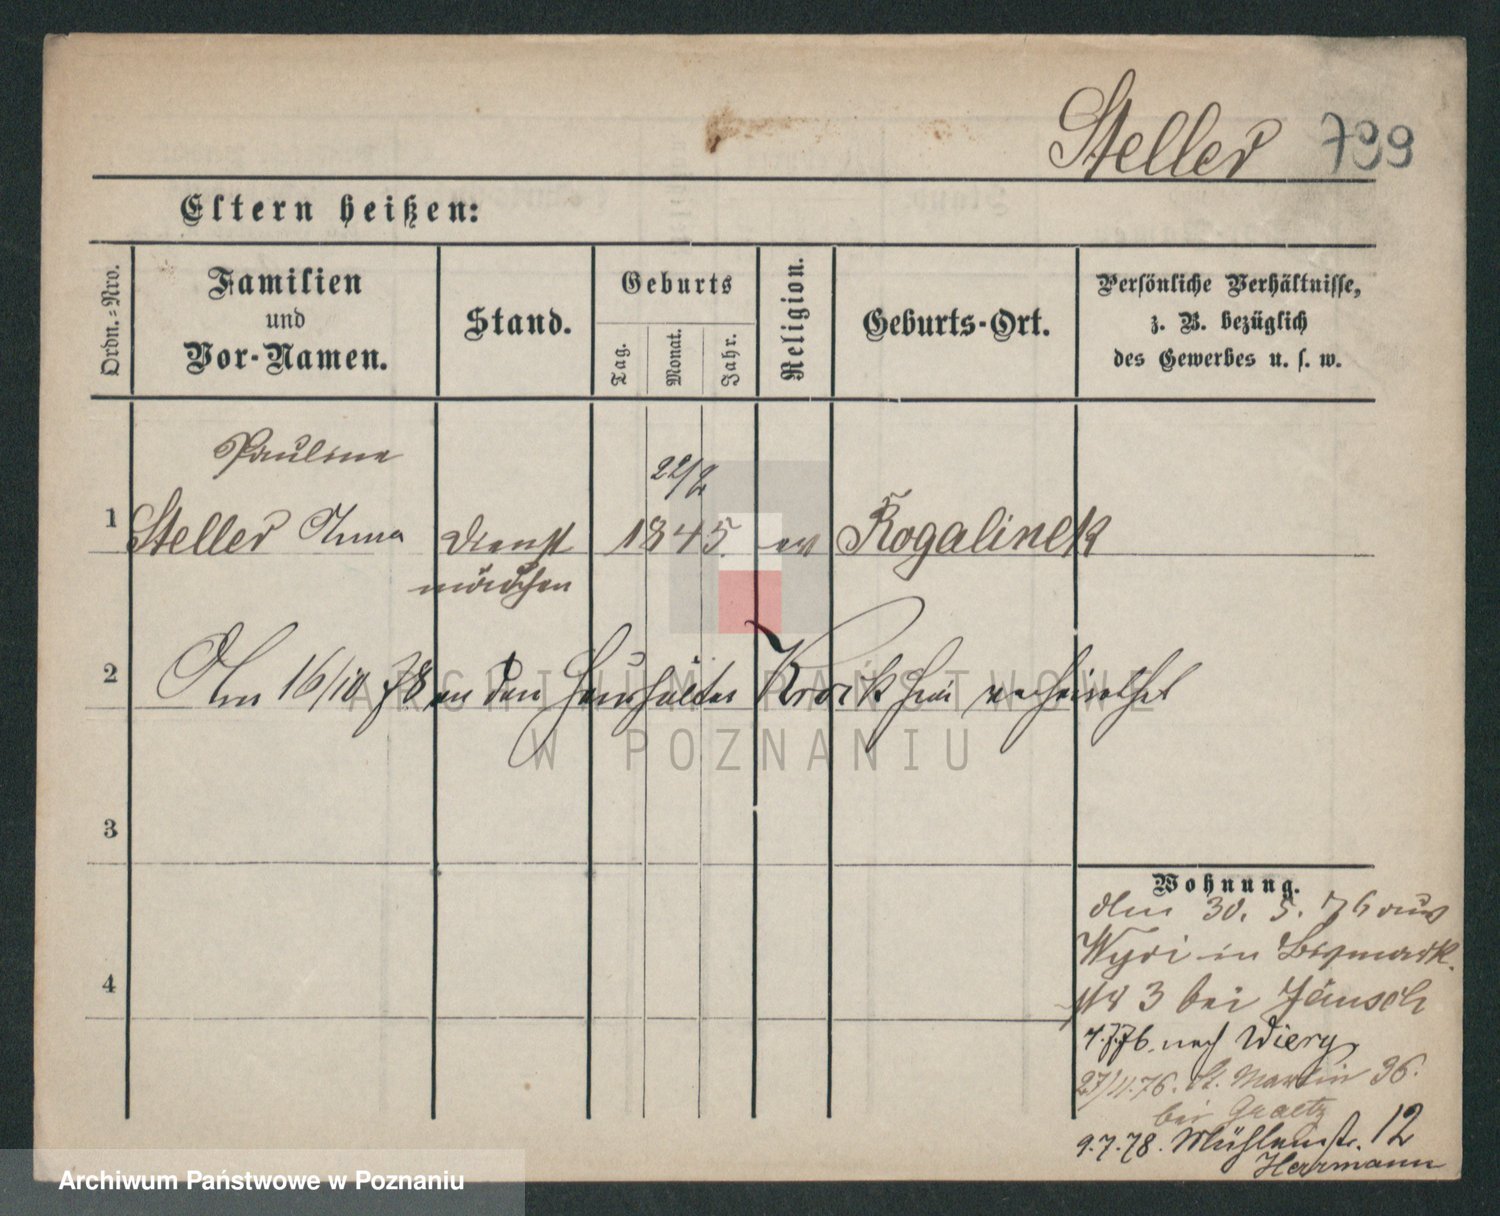 Steller 799
Eltern heißen:
Ordn.=Nro.
Familien
und
Vor-Namen.
Stand.
Geburts
Tag.
Monat.
Jahr.
Religion.
Geburts-Ort.
Persönliche Verhältnisse,
z. B. bezüglich
des Gewerbes u. s. w.
Pauline
22/2
1 Steller Anna Dienst 1845 ev Rogalinek
mädchen
2 Am 16/10 78 an den Haushälter Kroik hier verheirathet
3
Wohnung.
den 30. 5. 76 aus
Wyri in Bismark.
str 3 bei Jänsch
4
4.7.76. nach Wiery
27/11.76. St. Martin 36.
bei Graetz
9.7.78. Mühlenstr. 12
Herrmann
ARCHIWUM PAŃSTWOWE
W POZNANIU
Archiwum Państwowe w Poznaniu